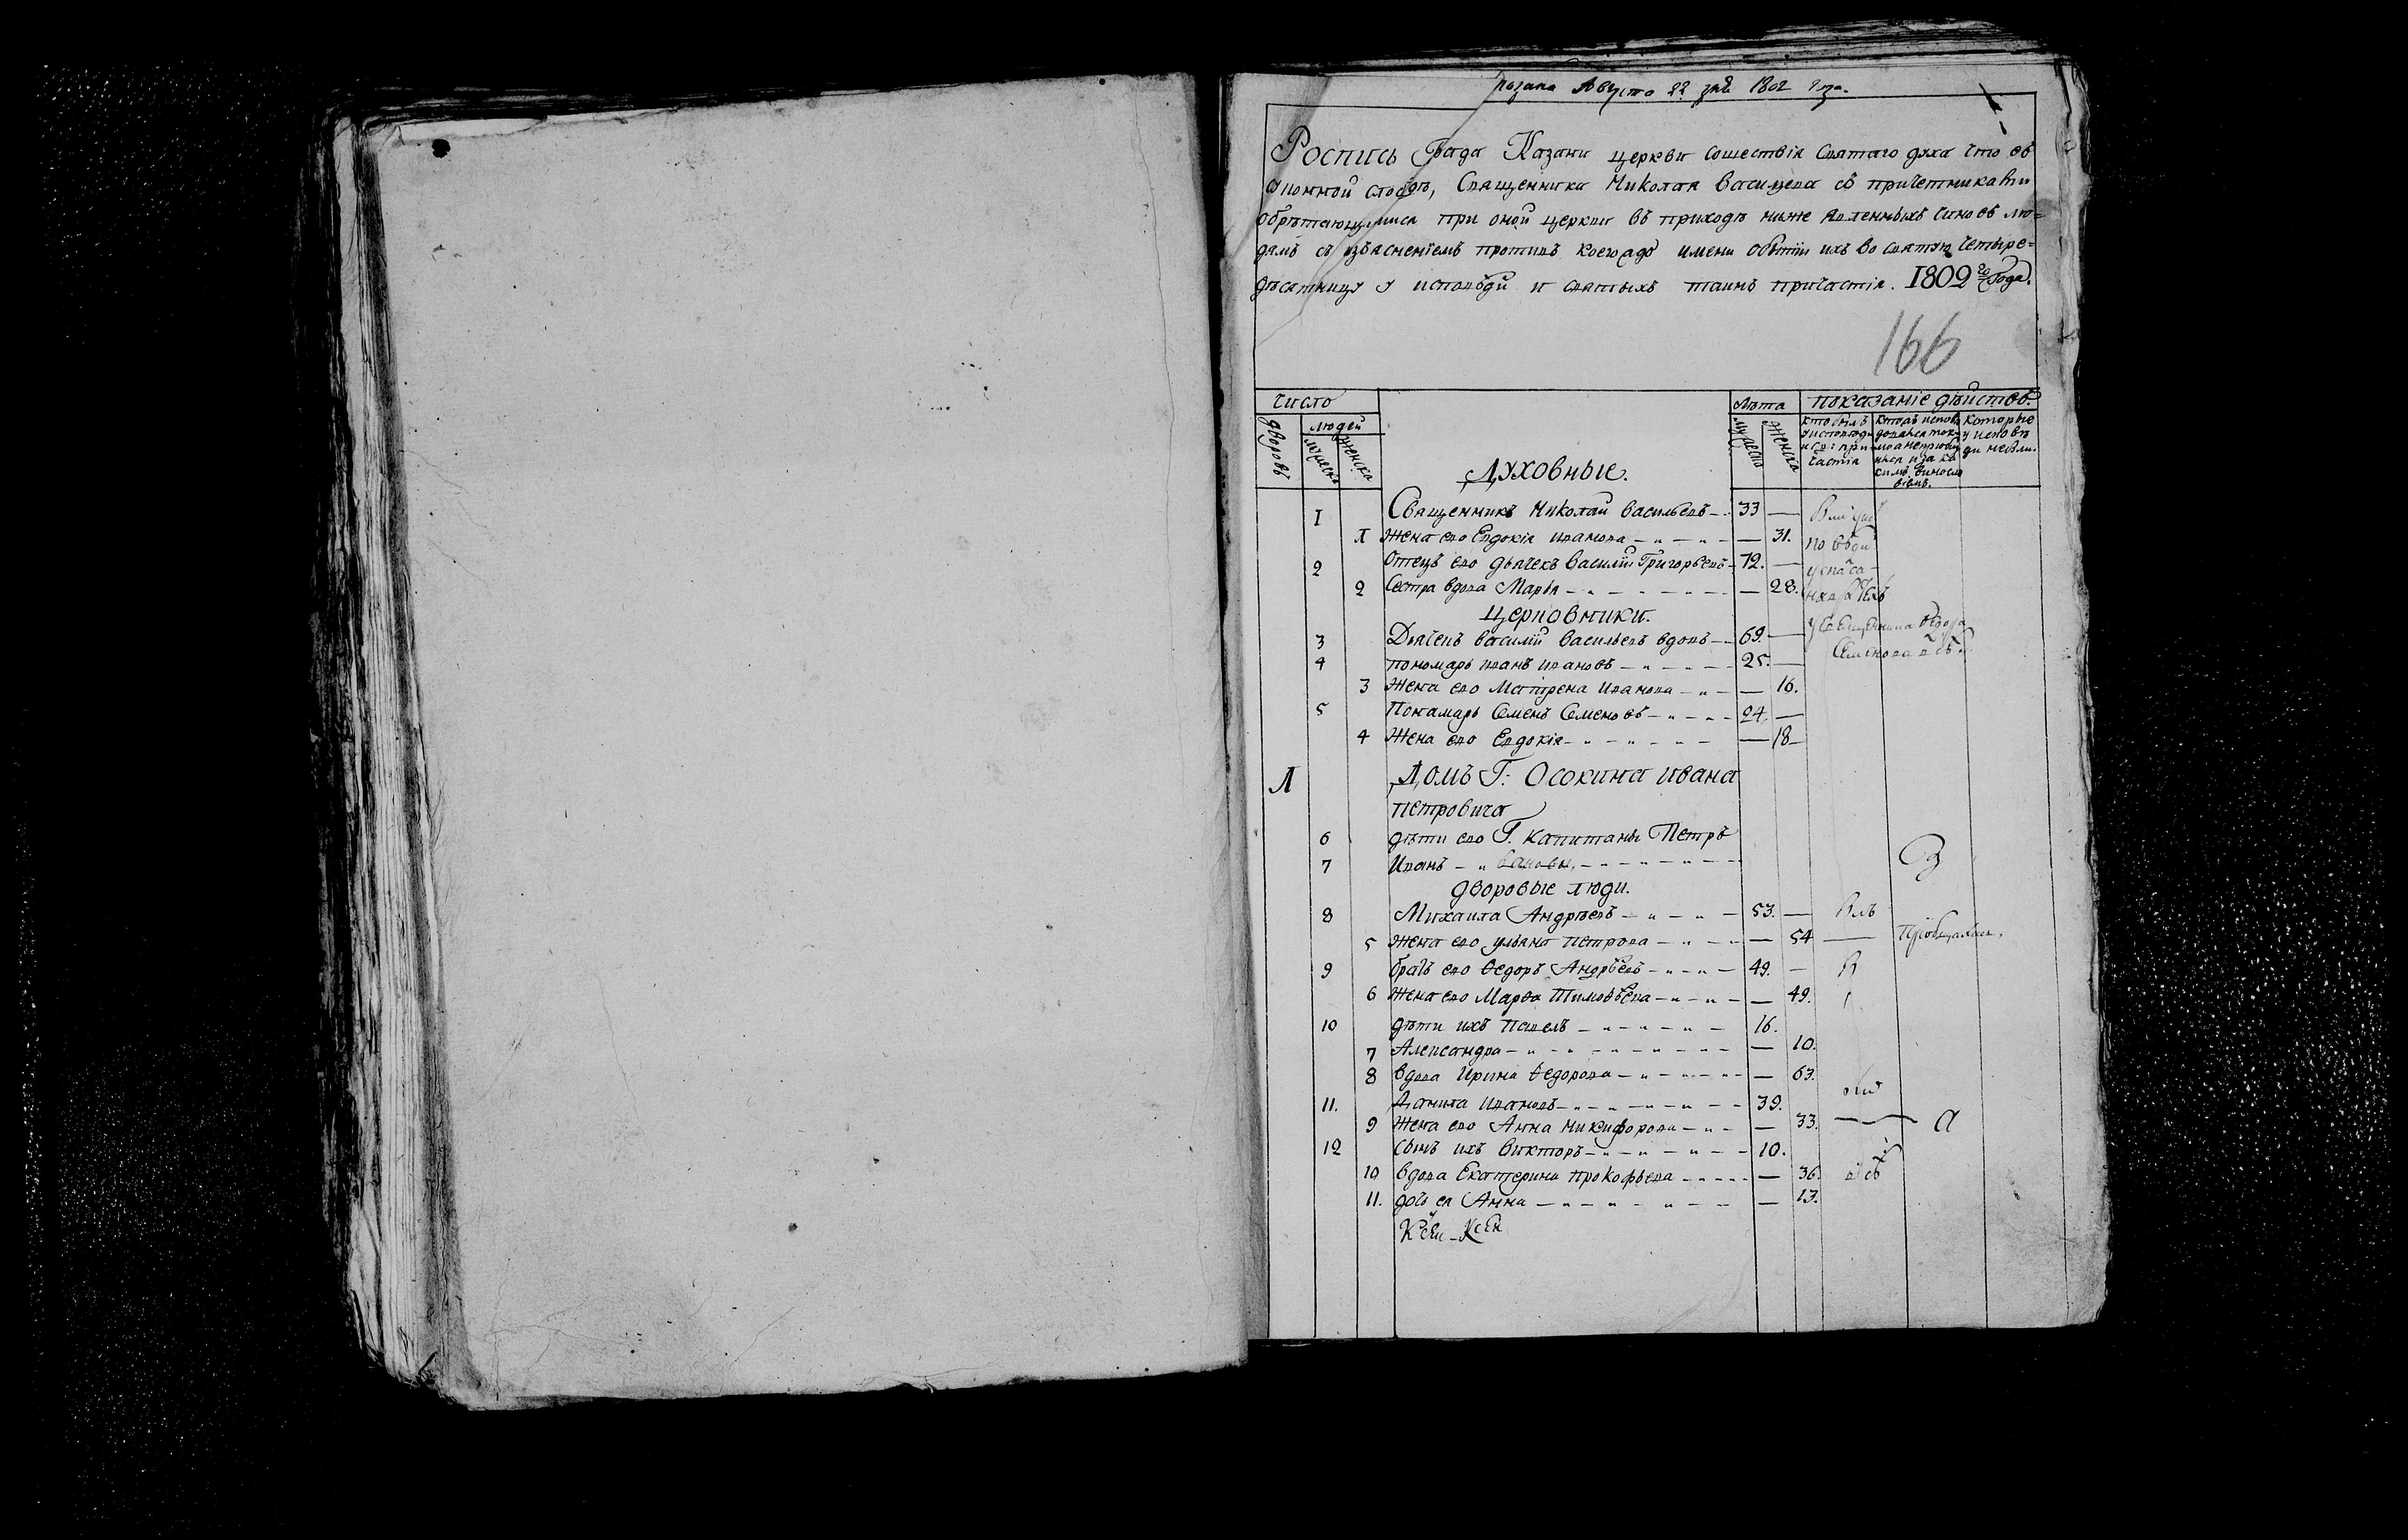 Августа 22 дня 1802 года.
Роспись Града Казани церкви сошествія Святаго духа что въ
слободѣ, Священника Николая Васильева съ причетниками
обрѣтающимися при оной церкви въ приходѣ ниже явленныхъ чиновъ лю=
дямъ съ изъясненіемъ противъ коегождо имени бытіи ихъ во святую четыре=
десятницу у исповѣди и святыхъ таинъ причастія. 1802 го Года.
166
Число
Лѣта
показаніе дѣйствъ.
дворовъ
людей
мужеска
женска
мужеска
женска
кто былъ у исповѣди и св: при частія
которые у исповѣ ди не были.
Духовные.
1 Священникъ Николай Васильевъ 33 —
1 Жена его Евдокія Иванова — 31.
2 Отецъ его дьячекъ Василій Григорьевъ 72. —
2 Сестра вдова Марья — 28.
Церковники.
3 Дьячекъ Василій Васильевъ вдовъ 69. —
4 пономарь Иванъ Ивановъ 25. —
3 Жена его Матрена Иванова — 16.
5 Пономарь Семенъ Семеновъ 24 —
4 Жена его Евдокія — 18
1 Домъ Г: Осокина Ивана
Петровича
6 дѣти его Г. Капитаны Петръ
7 Иванъ
дворовые люди.
8 Михаила Андрѣевъ 53. —
5 Жена его Ульяна Петрова — 54
9 братъ его Ѳедоръ Андрѣевъ 49. —
6 Жена его Марѳа Тимоѳѣева — 49.
10 дѣти ихъ Павелъ 16.
7 Александра — 10.
8 вдова Ирина Ѳедорова — 63.
11. Данила Ивановъ 39.
9 Жена его Анна Никифорова — 33.
12 сынъ ихъ Викторъ 10.
10 вдова Екатерина Прокофьева — 36.
11. дочь ея Анна — 13.